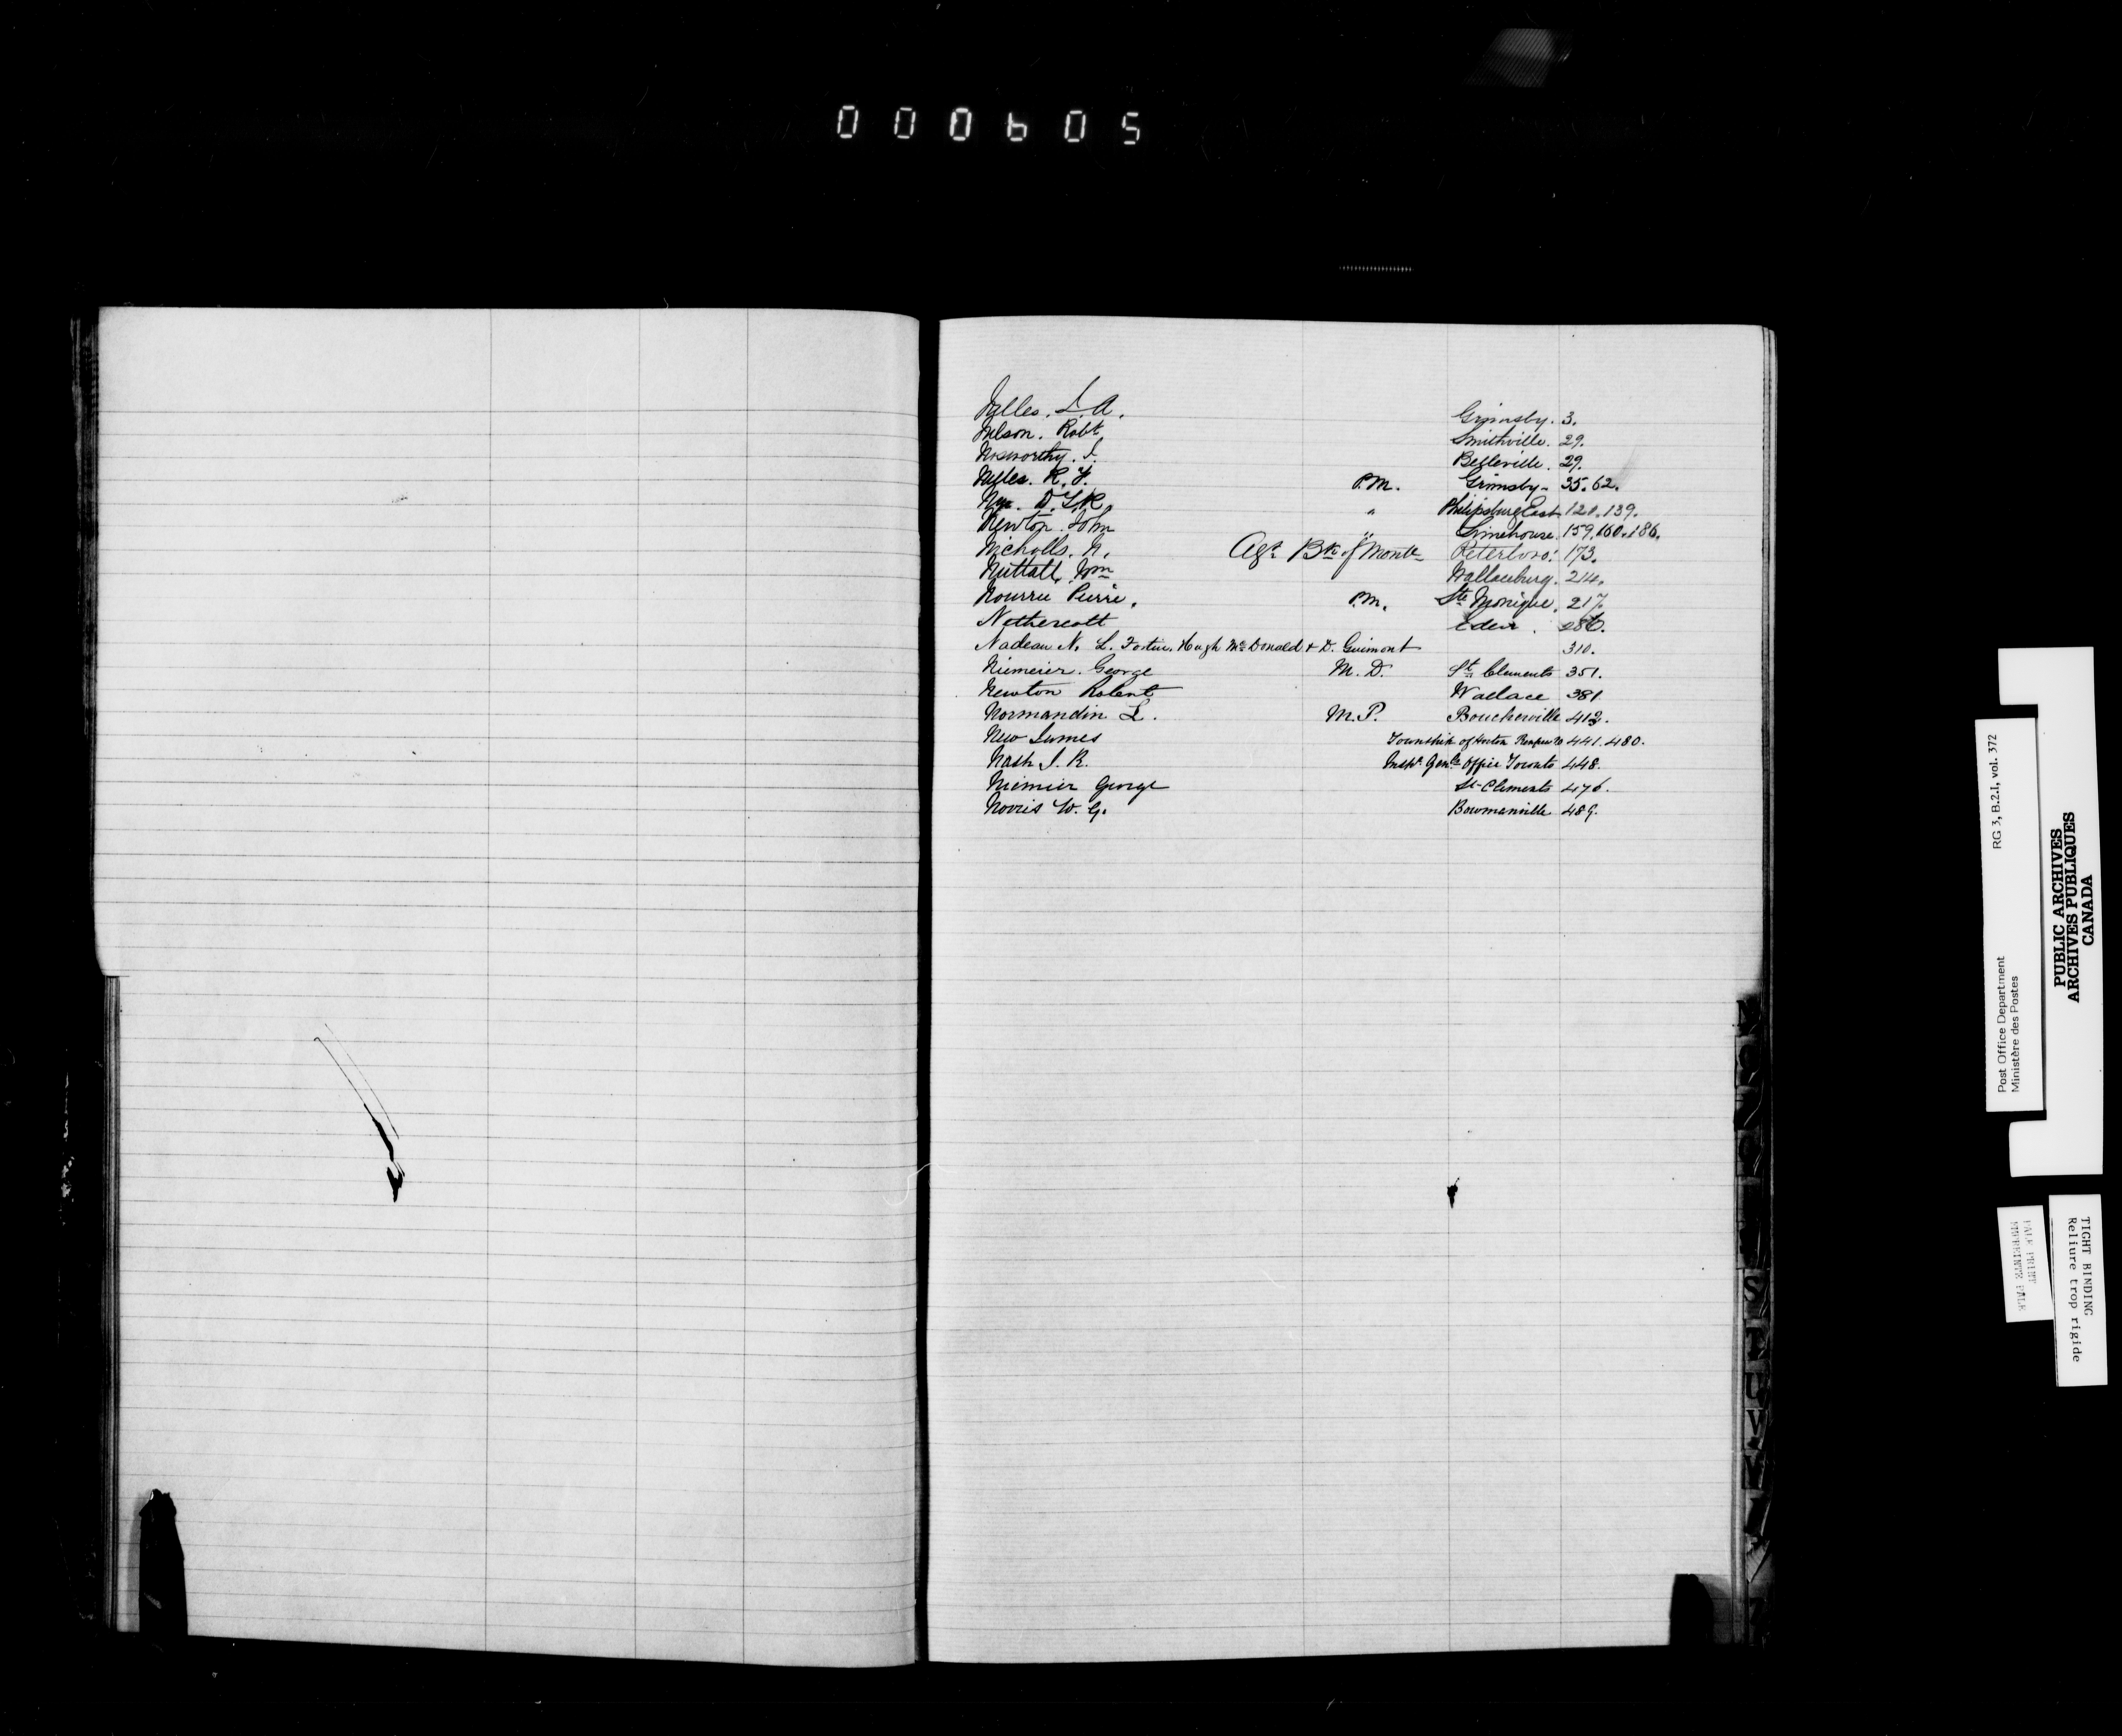 000605
Nelles. J. A. Grimsby. 3.
Nelson. Robt Smithville. 29.
Nosworthy. J. Belleville. 29.
Nelles. R. F. P.M. Grimsby- 35. 62.
Nye. D. T. R. " Philipsburg East 120. 139.
Newton. John " Limehouse. 159. 160. 186.
Nicholls. N. Agt. Bk of Montl Peterboro: 173.
Nuttall, Wm Wallaceburg. 214.
Nourrie Pierre. P.M. Ste Monique. 217.
Nethercott Eden. 286.
Nadeau N. L. Fortin. Hugh McDonald & D. Guimont 310.
Niemeier. George M. D. St Clements 351.
Newton Robert Wallace 381
Normandin L. M.P. Boucherville 412.
New James Township of Horton Renfrew Co 441. 480.
Nash J. R. Inspr Genls Office Toronto 448.
Niemier George St Clements 476.
Norris W. G. Bowmanville 489.
Post Office Department RG 3, B.2.1, vol. 372
Ministère des Postes
PUBLIC ARCHIVES
ARCHIVES PUBLIQUES
CANADA
PALE PRINT
IMPRIMERIE PALE
TIGHT BINDING
Reliure trop rigide
S
T
U
V